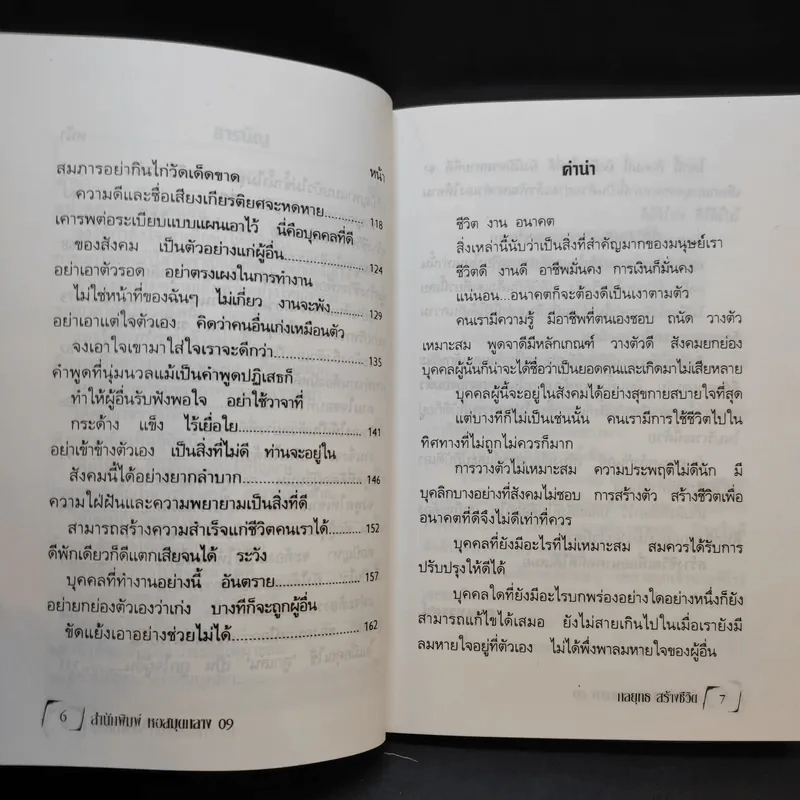 หน้า
สมภารอย่ากินไก่วัดเด็ดขาด
ความดีและชื่อเสียงเกียรติยศจะหดหาย..............118
เคารพต่อระเบียบแบบแผนเอาไว้ นี่คือบุคคลที่ดี
ของสังคม เป็นตัวอย่างแก่ผู้อื่น..............124
อย่าเอาตัวรอด อย่าตรงเผงในการทำงาน
ไม่ใช่หน้าที่ของฉันๆ ไม่เกี่ยว งานจะพัง..............129
อย่าเอาแต่ใจตัวเอง คิดว่าคนอื่นเก่งเหมือนตัว
จงเอาใจเขามาใส่ใจเราจะดีกว่า..............135
คำพูดที่นุ่มนวลแม้เป็นคำพูดปฏิเสธก็
ทำให้ผู้อื่นรับฟังพอใจ อย่าใช้วาจาที่
กระด้าง แข็ง ไร้เยื่อใย..............141
อย่าเข้าข้างตัวเอง เป็นสิ่งที่ไม่ดี ท่านจะอยู่ใน
สังคมนี้ได้อย่างยากลำบาก..............146
ความใฝ่ฝันและความพยายามเป็นสิ่งที่ดี
สามารถสร้างความสำเร็จแก่ชีวิตคนเราได้..............152
ดีพักเดียวก็ดีแตกเสียจนได้ ระวัง
บุคคลที่ทำงานอย่างนี้ อันตราย..............157
อย่ายกย่องตัวเองว่าเก่ง บางทีก็จะถูกผู้อื่น
ขัดแย้งเอาอย่างช่วยไม่ได้..............162
6 สำนักพิมพ์ หอสมุดกลาง 09
คำนำ
ชีวิต งาน อนาคต
สิ่งเหล่านี้นับว่าเป็นสิ่งที่สำคัญมากของมนุษย์เรา
ชีวิตดี งานดี อาชีพมั่นคง การเงินก็มั่นคง
แน่นอน...อนาคตก็จะต้องดีเป็นเงาตามตัว
คนเรามีความรู้ มีอาชีพที่ตนเองชอบ ถนัด วางตัว
เหมาะสม พูดจาดีมีหลักเกณฑ์ วางตัวดี สังคมยกย่อง
บุคคลผู้นั้นก็น่าจะได้ชื่อว่าเป็นยอดคนและเกิดมาไม่เสียหลาย
บุคคลผู้นี้จะอยู่ในสังคมได้อย่างสุขกายสบายใจที่สุด
แต่บางทีก็ไม่เป็นเช่นนั้น คนเรามีการใช้ชีวิตไปใน
ทิศทางที่ไม่ถูกไม่ควรก็มาก
การวางตัวไม่เหมาะสม ความประพฤติไม่ดีนัก มี
บุคลิกบางอย่างที่สังคมไม่ชอบ การสร้างตัว สร้างชีวิตเพื่อ
อนาคตที่ดีจึงไม่ดีเท่าที่ควร
บุคคลที่ยังมีอะไรที่ไม่เหมาะสม สมควรได้รับการ
ปรับปรุงให้ดีได้
บุคคลใดที่ยังมีอะไรบกพร่องอย่างใดอย่างหนึ่งก็ยัง
สามารถแก้ไขได้เสมอ ยังไม่สายเกินไปในเมื่อเรายังมี
ลมหายใจอยู่ที่ตัวเอง ไม่ได้พึ่งพาลมหายใจของผู้อื่น
กลยุทธ สร้างชีวิต 7